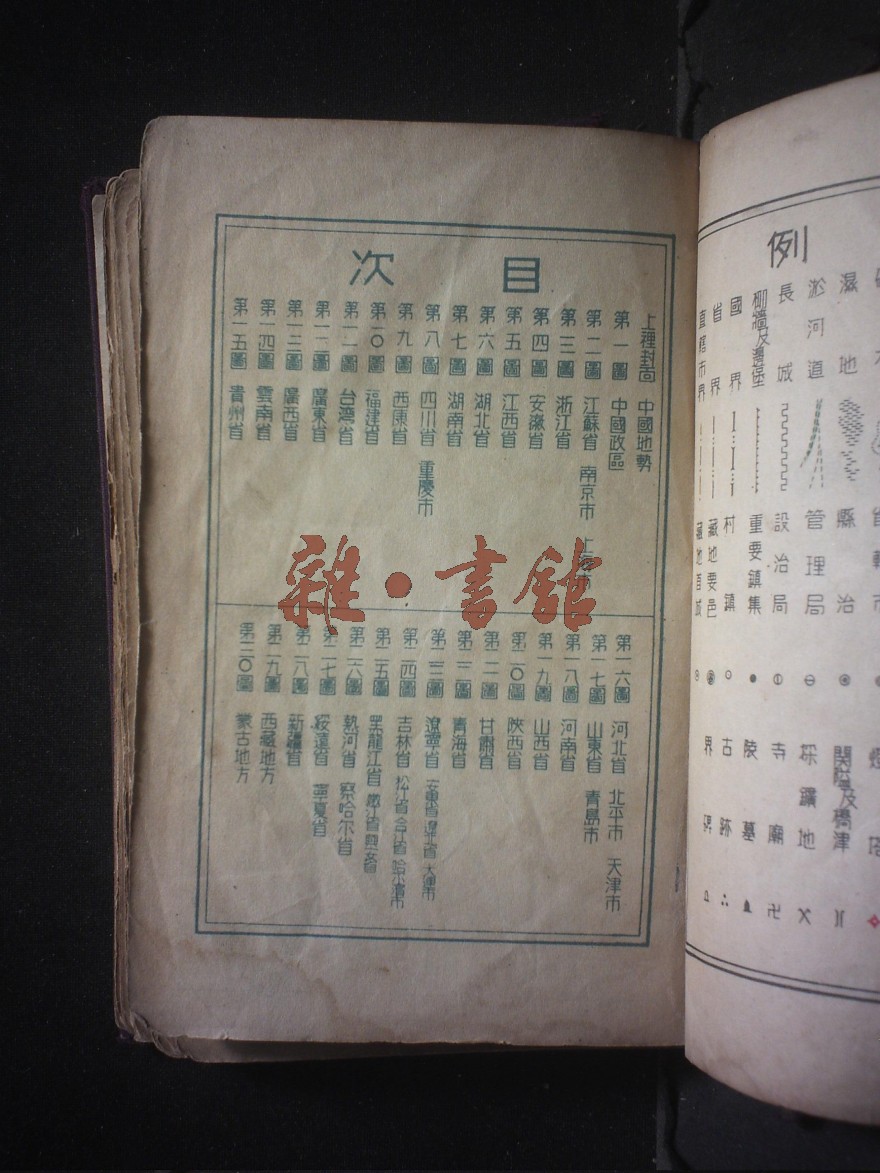 例
濕地
淤河道
長城
柳牆及邊堡
國界
省界
直轄市界
縣治
管理局
設治局
重要鎮集
村鎮
藏地要邑
關隘及橋津
採鑛地
寺廟
陵墓
古跡
界碑
目次
上裡封面 中國地勢
第一圖 中國政區
第二圖 江蘇省 南京市 上海市
第三圖 浙江省
第四圖 安徽省
第五圖 江西省
第六圖 湖北省
第七圖 湖南省
第八圖 四川省 重慶市
第九圖 西康省
第一〇圖 福建省
第一一圖 台灣省
第一二圖 廣東省
第一三圖 廣西省
第一四圖 雲南省
第一五圖 貴州省
第一六圖 河北省 北平市 天津市
第一七圖 山東省 青島市
第一八圖 河南省
第一九圖 山西省
第二〇圖 陝西省
第二一圖 甘肅省
第二二圖 青海省
第二三圖 遼寧省 安東省 遼北省 大連市
第二四圖 吉林省 松江省 合江省 哈爾濱市
第二五圖 黑龍江省 嫩江省 興安省
第二六圖 熱河省 察哈尔省
第二七圖 綏遠省 寧夏省
第二八圖 新疆省
第二九圖 西藏地方
第三〇圖 蒙古地方
雜·書館